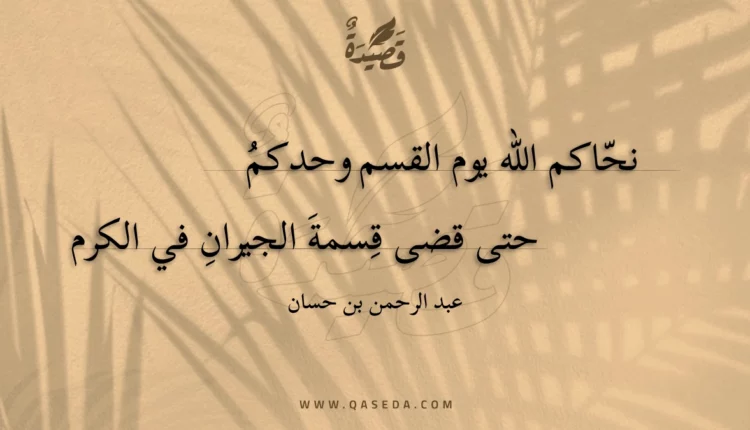 قَصِيْدَةٌ
نحّاكم الله يوم القسم وحدكمُ
حتى قضى قِسمةَ الجيرانِ في الكرم
عبد الرحمن بن حسان
WWW.QASEDA.COM